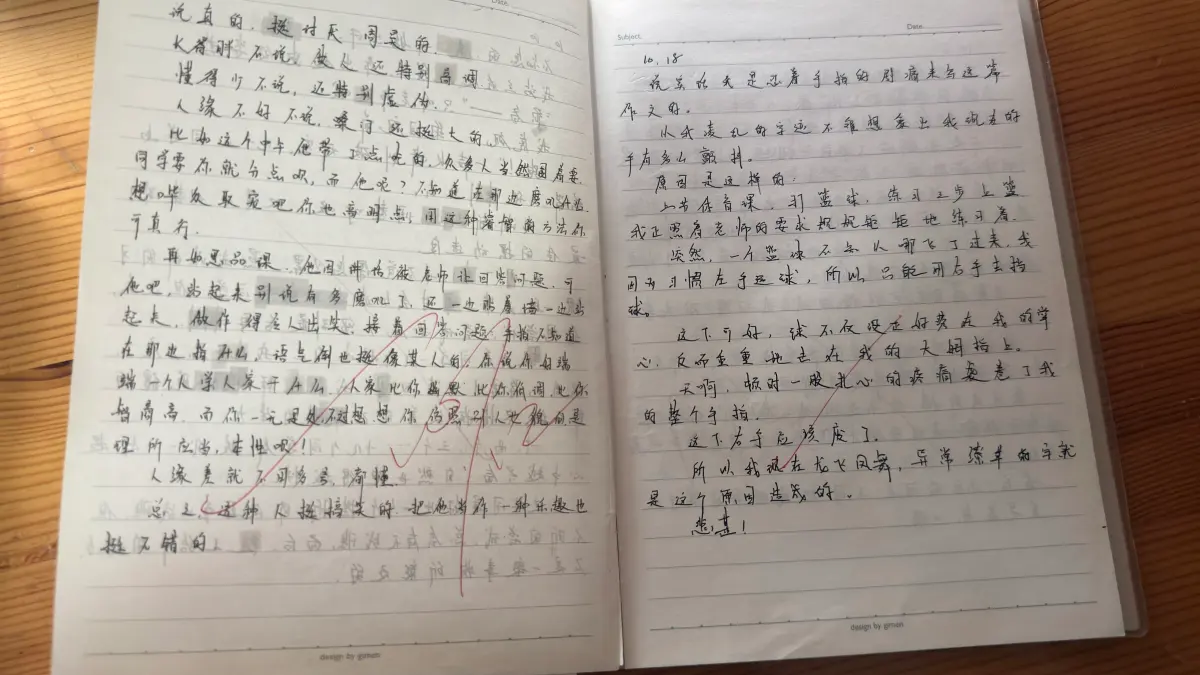 Date.
说真的，挺讨厌周昊的.
长得 不说，做人 还 特别 高 调
懂得少不说，还特别虚伪.
人缘 不好 不说，嗓门 还挺大的.
比如这个中午他带了点吃的，众多人当然围着要.
同学要你就分点呗，而他呢？不知道在那边磨叽什么.
想 取宠吧你也高明点，用这种 的方法你
可真行.
再如思品课，他因 被老师让回答问题，可
他吧，站起来别说有多磨叽了，还一边 着 一边站
起来，做作得 人出 接着回答问题，手指不知道
在那边指什么，语气倒也挺像某人的，你说你好端
端一个人学人家干什么，人家比你幽默 比你低调 比你
智商高，而你一无是处 不想想你 别人 的是
理所应当，本性呗！
人缘差就不用多言，都懂.
总之，这种人挺搞笑的 把他当作一种乐趣也
挺不错的
design by gimen
Subject: Date.
10.18
说实话我是忍着手指的剧痛来写这篇
作文的。
从我凌乱的字迹不难想象出我现在的
手有多么颤抖。
原因是这样的：
上节体育课，打篮球，练习三步上篮
我正照着老师的要求规规矩矩地练习着.
突然，一个篮球不知从哪飞了过来，我
因为习惯左手运球，所以只能用右手去挡
球。
这下可好，球不仅没正好落在我的掌
心，反而重重地击在我的大拇指上。
天啊，顿时一股扎心的疼痛袭卷了我
的整个手指.
这下右手应该废了.
所以我现在龙飞凤舞，异常潦草的字就
是这个原因造成的。
悲哉！
design by gimen